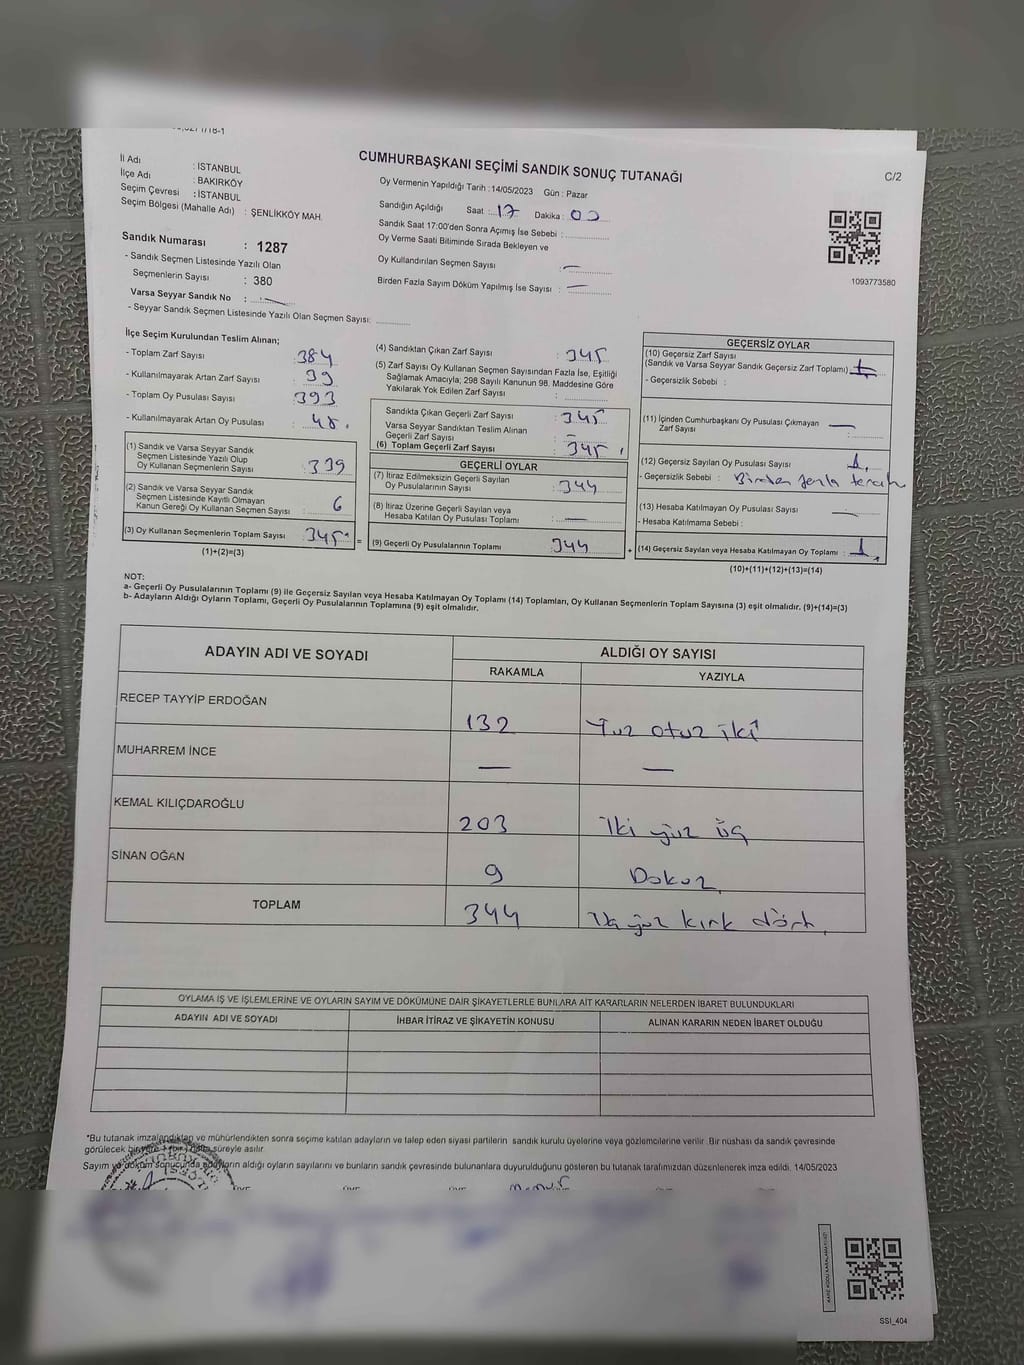 CUMHURBAŞKANI SEÇİMİ SANDIK SONUÇ TUTANAĞI
C/2
İl Adı : İSTANBUL
İlçe Adı : BAKIRKÖY
Seçim Çevresi : İSTANBUL
Seçim Bölgesi (Mahalle Adı) : ŞENLİKKÖY MAH.
Sandık Numarası : 1287
- Sandık Seçmen Listesinde Yazılı Olan
Seçmenlerin Sayısı : 380
Varsa Seyyar Sandık No : —
- Seyyar Sandık Seçmen Listesinde Yazılı Olan Seçmen Sayısı:
Oy Vermenin Yapıldığı Tarih : 14/05/2023 Gün : Pazar
Sandığın Açıldığı Saat : 17 Dakika : 00
Sandık Saat 17:00'den Sonra Açımış İse Sebebi :
Oy Verme Saati Bitiminde Sırada Bekleyen ve
Oy Kullandırılan Seçmen Sayısı : —
Birden Fazla Sayım Döküm Yapılmış İse Sayısı : —
1093773580
İlçe Seçim Kurulundan Teslim Alınan;
- Toplam Zarf Sayısı : 384
- Kullanılmayarak Artan Zarf Sayısı : 39
- Toplam Oy Pusulası Sayısı : 393
- Kullanılmayarak Artan Oy Pusulası : 48.
(1) Sandık ve Varsa Seyyar Sandık
Seçmen Listesinde Yazılı Olup
Oy Kullanan Seçmenlerin Sayısı : 339
(2) Sandık ve Varsa Seyyar Sandık
Seçmen Listesinde Kayıtlı Olmayan
Kanun Gereği Oy Kullanan Seçmen Sayısı : 6
(3) Oy Kullanan Seçmenlerin Toplam Sayısı : 345
(1)+(2)=(3)
=
(4) Sandıktan Çıkan Zarf Sayısı : 345
(5) Zarf Sayısı Oy Kullanan Seçmen Sayısından Fazla İse, Eşitliği
Sağlamak Amacıyla; 298 Sayılı Kanunun 98. Maddesine Göre
Yakılarak Yok Edilen Zarf Sayısı :
Sandıkta Çıkan Geçerli Zarf Sayısı : 345
Varsa Seyyar Sandıktan Teslim Alınan
Geçerli Zarf Sayısı : —
(6) Toplam Geçerli Zarf Sayısı : 345
GEÇERLİ OYLAR
(7) İtiraz Edilmeksizin Geçerli Sayılan
Oy Pusulalarının Sayısı : 344
(8) İtiraz Üzerine Geçerli Sayılan veya
Hesaba Katılan Oy Pusulası Toplamı : —
(9) Geçerli Oy Pusulalarının Toplamı : 344
+
GEÇERSİZ OYLAR
(10) Geçersiz Zarf Sayısı
(Sandık ve Varsa Seyyar Sandık Geçersiz Zarf Toplamı)
- Geçersizlik Sebebi :
(11) İçinden Cumhurbaşkanı Oy Pusulası Çıkmayan
Zarf Sayısı : —
(12) Geçersiz Sayılan Oy Pusulası Sayısı : 1.
- Geçersizlik Sebebi : Birden fazla tercih
(13) Hesaba Katılmayan Oy Pusulası Sayısı : —
- Hesaba Katılmama Sebebi :
(14) Geçersiz Sayılan veya Hesaba Katılmayan Oy Toplamı : 1.
(10)+(11)+(12)+(13)=(14)
NOT:
a- Geçerli Oy Pusulalarının Toplamı (9) ile Geçersiz Sayılan veya Hesaba Katılmayan Oy Toplamı (14) Toplamları, Oy Kullanan Seçmenlerin Toplam Sayısına (3) eşit olmalıdır. (9)+(14)=(3)
b- Adayların Aldığı Oyların Toplamı, Geçerli Oy Pusulalarının Toplamına (9) eşit olmalıdır.
ADAYIN ADI VE SOYADI ALDIĞI OY SAYISI
RAKAMLA YAZIYLA
RECEP TAYYİP ERDOĞAN 132 Yüz otuz iki
MUHARREM İNCE — —
KEMAL KILIÇDAROĞLU 203 İki yüz üç
SİNAN OĞAN 9 Dokuz
TOPLAM 344 Üç yüz kırk dört
OYLAMA İŞ VE İŞLEMLERİNE VE OYLARIN SAYIM VE DÖKÜMÜNE DAİR ŞİKAYETLERLE BUNLARA AİT KARARLARIN NELERDEN İBARET BULUNDUKLARI
ADAYIN ADI VE SOYADI İHBAR İTİRAZ VE ŞİKAYETİN KONUSU ALINAN KARARIN NEDEN İBARET OLDUĞU
*Bu tutanak imzalandıktan ve mühürlendikten sonra seçime katılan adayların ve talep eden siyasi partilerin sandık kurulu üyelerine veya gözlemcilerine verilir. Bir nüshası da sandık çevresinde
görülecek bir yere 1 (bir) hafta süreyle asılır.
Sayım ve döküm sonucunda adayların aldığı oyların sayılarını ve bunların sandık çevresinde bulunanlara duyurulduğunu gösteren bu tutanak tarafımızdan düzenlenerek imza edildi. 14/05/2023
SSI_404